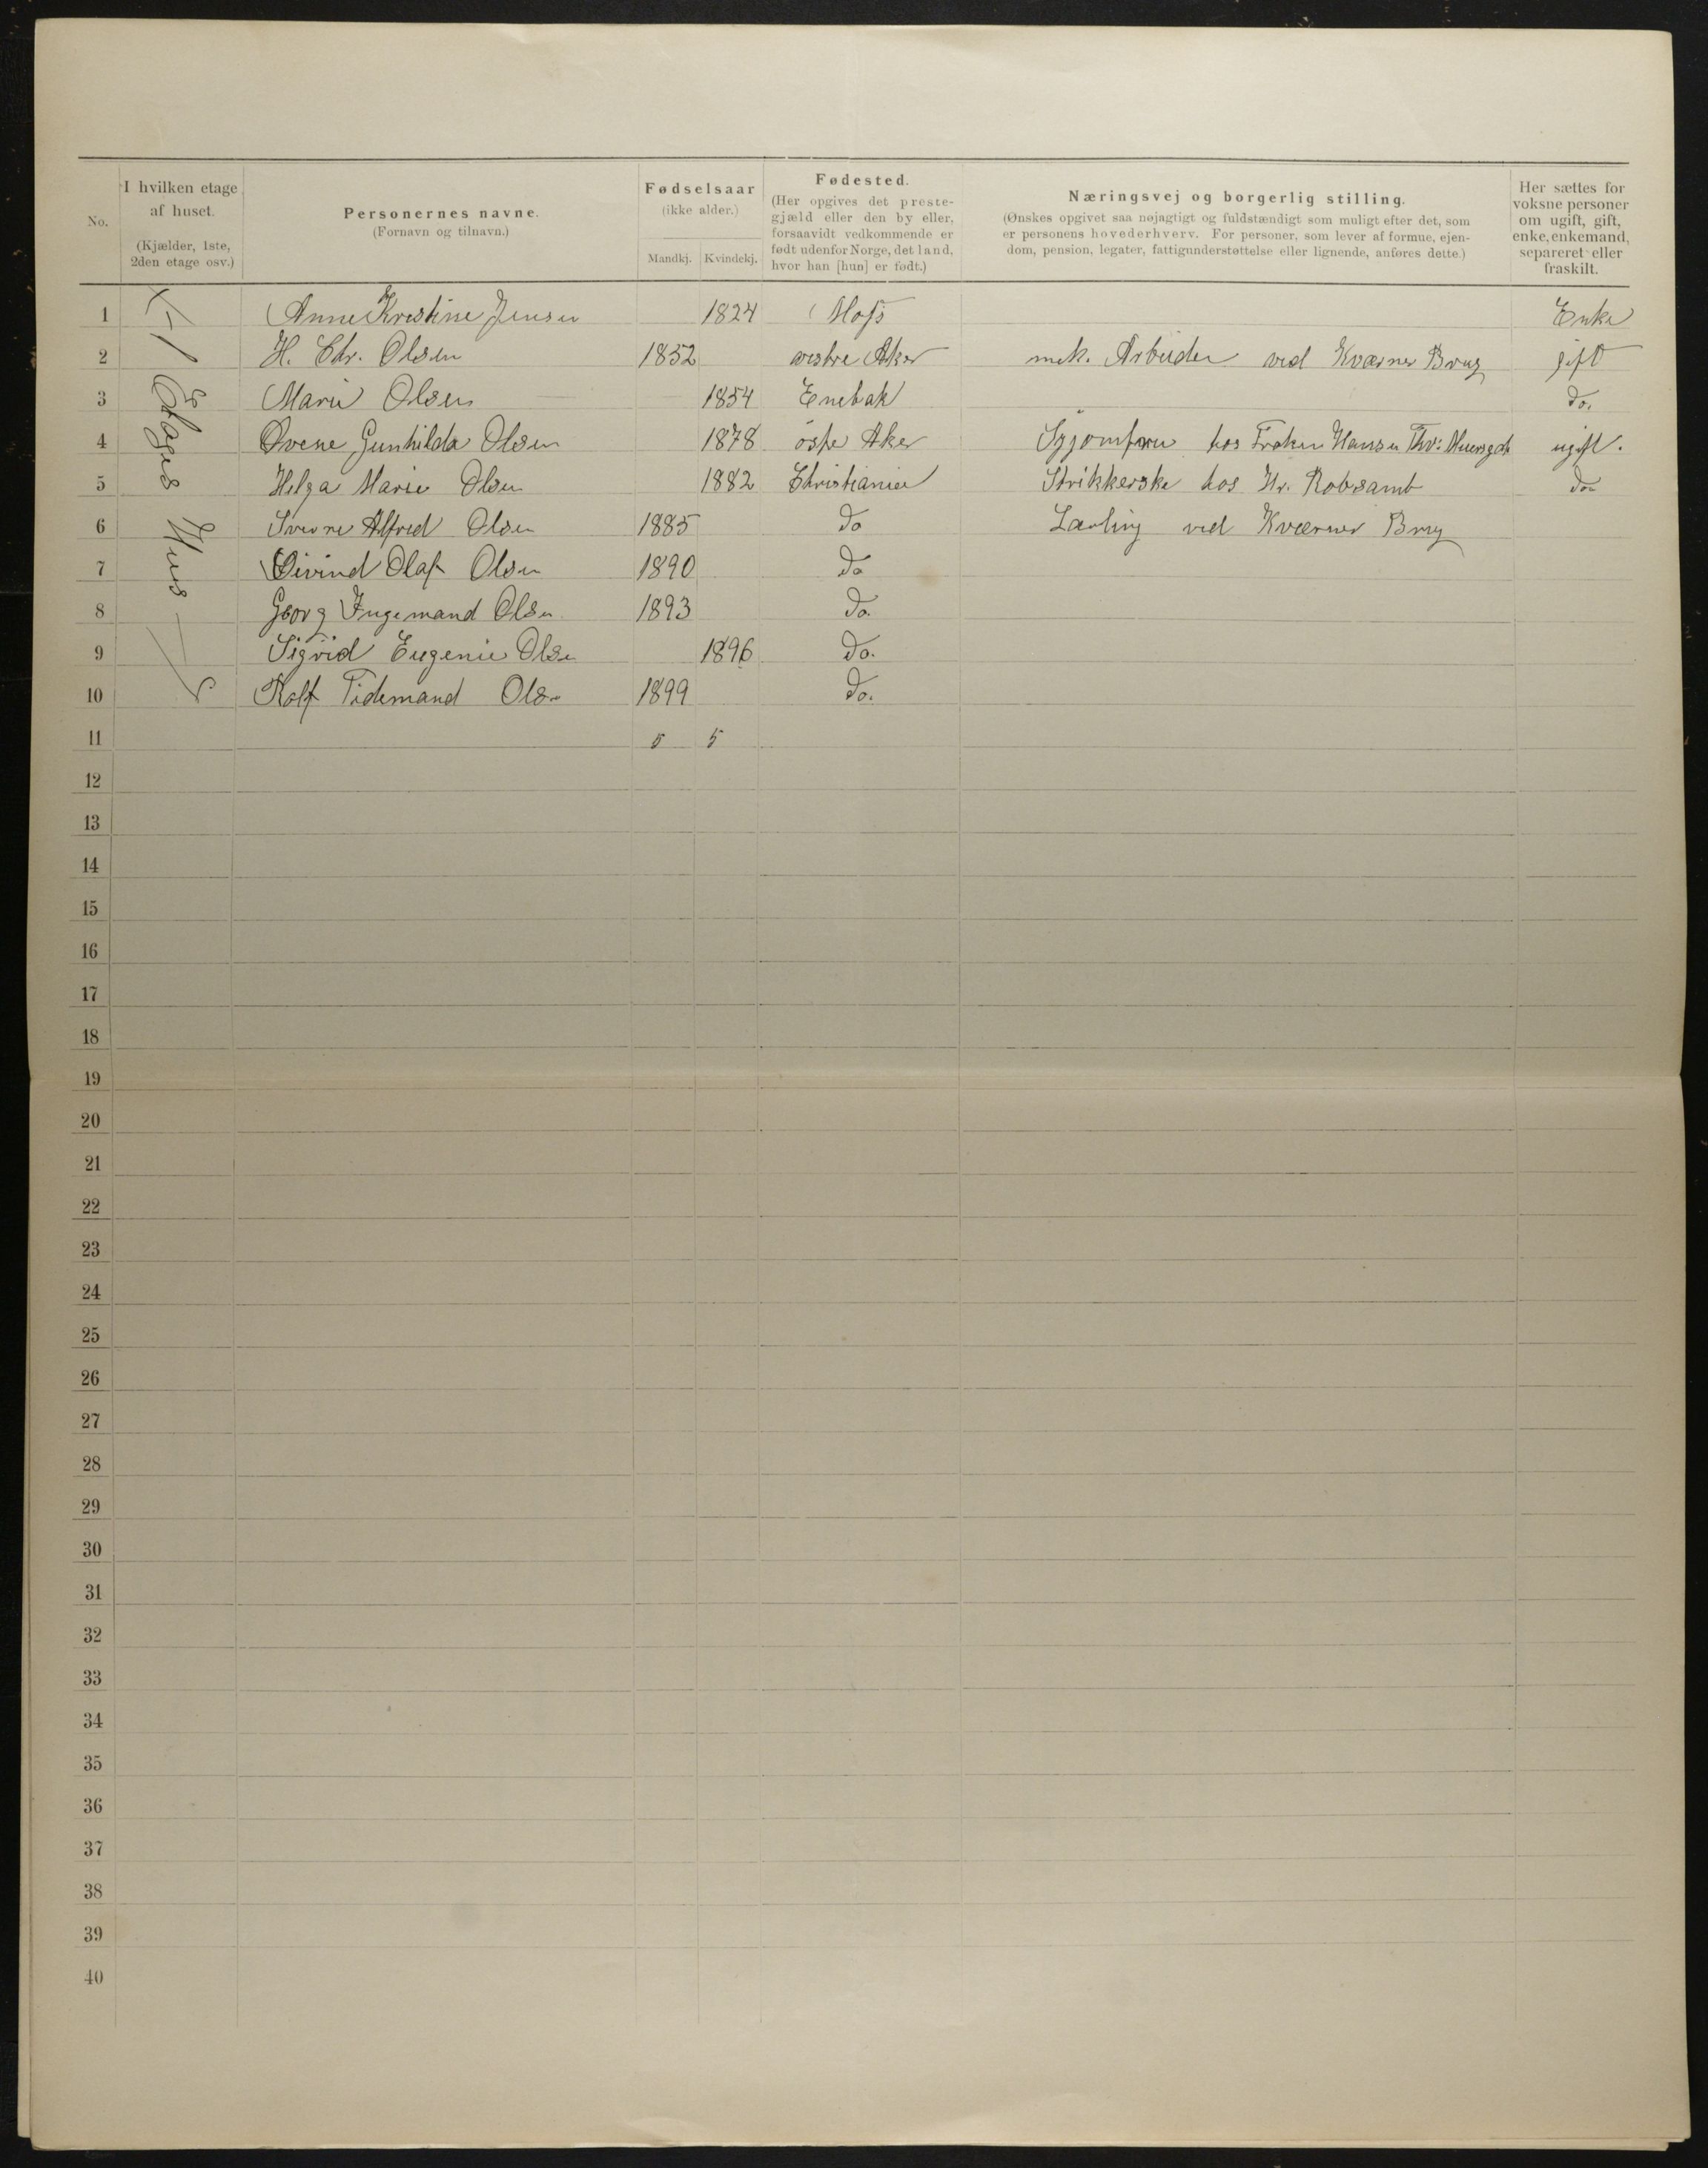 No.
I hvilken etage
af huset.
(Kjælder, 1ste,
2den etage osv.)
Personernes navne.
(Fornavn og tilnavn.)
Fødselsaar
(ikke alder.)
Mandkj. Kvindekj.
Fødested.
(Her opgives det preste-
gjæld eller den by eller,
forsaavidt vedkommende er
født udenfor Norge, det land,
hvor han [hun] er født.)
Næringsvej og borgerlig stilling.
(Ønskes opgivet saa nøjagtigt og fuldstændigt som muligt efter det, som
er personens hovederhverv. For personer, som lever af formue, ejen-
dom, pension, legater, fattigunderstøttelse eller lignende, anføres dette.)
Her sættes for
voksne personer
om ugift, gift,
enke, enkemand,
separeret eller
fraskilt.
1 Etages Hus
1 Anne Kristine Jensen 1824 Moss Enke
2 H. Chr. Olsen 1852 vestre Aker mek. Arbeider ved Kværner Brug gift
3 Marie Olsen 1854 Enebak do.
4 Gunhilda Olsen 1878 østre Aker Syjomfru hos Frøken Hansen ugift.
5 Helga Marie Olsen 1882 Christiania Strikkerske hos Hr. Robsamb do
6 Sverre Alfred Olsen 1885 do Lærling ved Kværner Brug
7 Øivind Olaf Olsen 1890 do
8 Georg Ingemand Olsen 1893 do.
9 Sigrid Eugenie Olsen 1896 do.
10 Rolf Tidemand Olsen 1899 do.
11 5 5
12
13
14
15
16
17
18
19
20
21
22
23
24
25
26
27
28
29
30
31
32
33
34
35
36
37
38
39
40